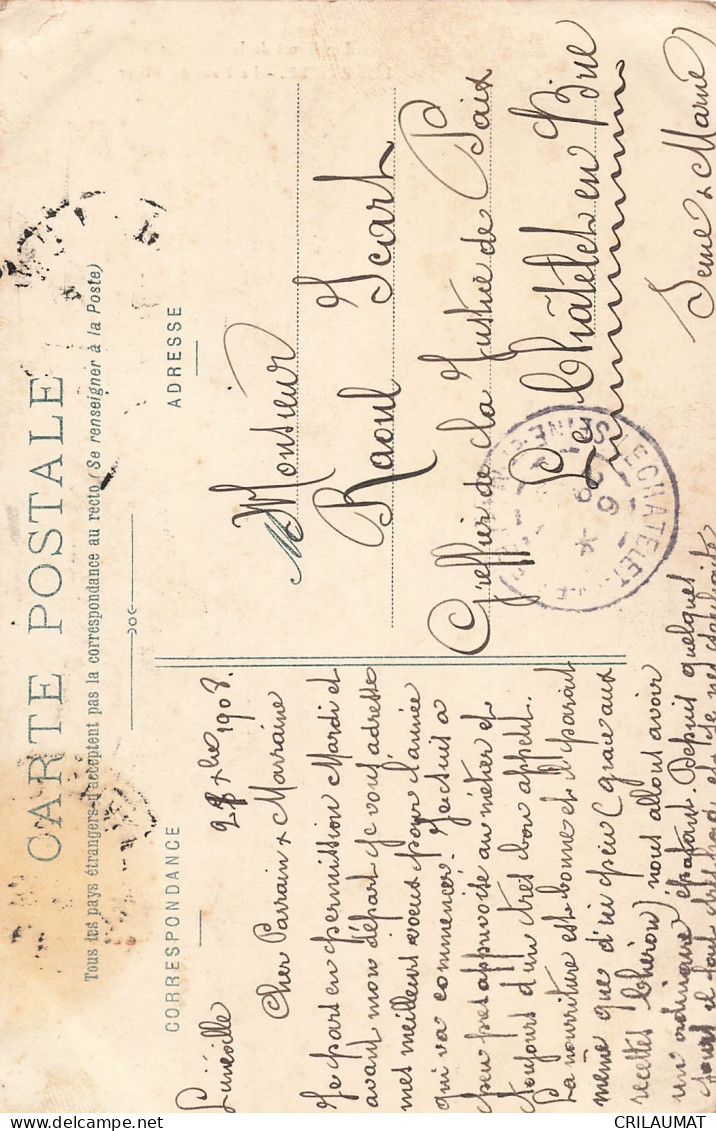 CARTE POSTALE
Tous les pays étrangers n'acceptent pas la correspondance au recto (Se renseigner à la Poste)
CORRESPONDANCE
ADRESSE
Lunéville 1908.
Cher Parrain & Marraine
Je pars en permission Mardi et
avant mon départ je vous adresse
mes meilleurs voeux pour l'année
qui va commencer. Je suis à
peu près apprivoisé au métier et
toujours d'un très bon appétit.
La nourriture est bonne et il parait
même que d'ici peu (grâce aux
recettes Chéron) nous allons avoir
un ordinaire épatant. Depuis quelques
jours il fait très
Monsieur
Raoul Icart
Greffier de la Justice de Paix
Le Châtelet en Brie
Seine & Marne
LE CHATELET
29
CRILAUMAT